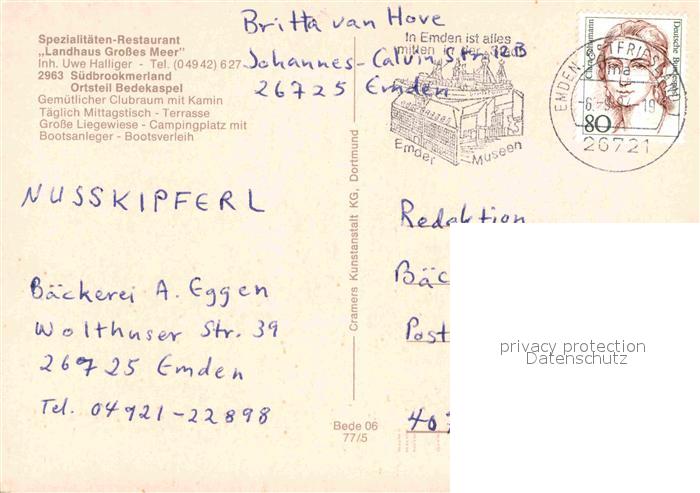 Spezialitäten-Restaurant
„Landhaus Großes Meer"
Inh. Uwe Halliger - Tel. (04942) 627
2963 Südbrookmerland
Ortsteil Bedekaspel
Gemütlicher Clubraum mit Kamin
Täglich Mittagstisch - Terrasse
Große Liegewiese - Campingplatz mit
Bootsanleger - Bootsverleih
Britta van Hove
Johannes-Calvin Str. 12B
26725 Emden
In Emden ist alles
mitten in der Stadt
Emder Museen
EMDEN, OSTFRIESL
ma
-6.-9.94-19
26721
Deutsche Bundespost
80
NUSSKIPFERL
Bäckerei A. Eggen
Wolthuser Str. 39
26725 Emden
Tel. 04921-22898
Cramers Kunstanstalt KG, Dortmund
Bede 06
77/5
Redaktion
Bäc
Post
privacy protection
Datenschutz